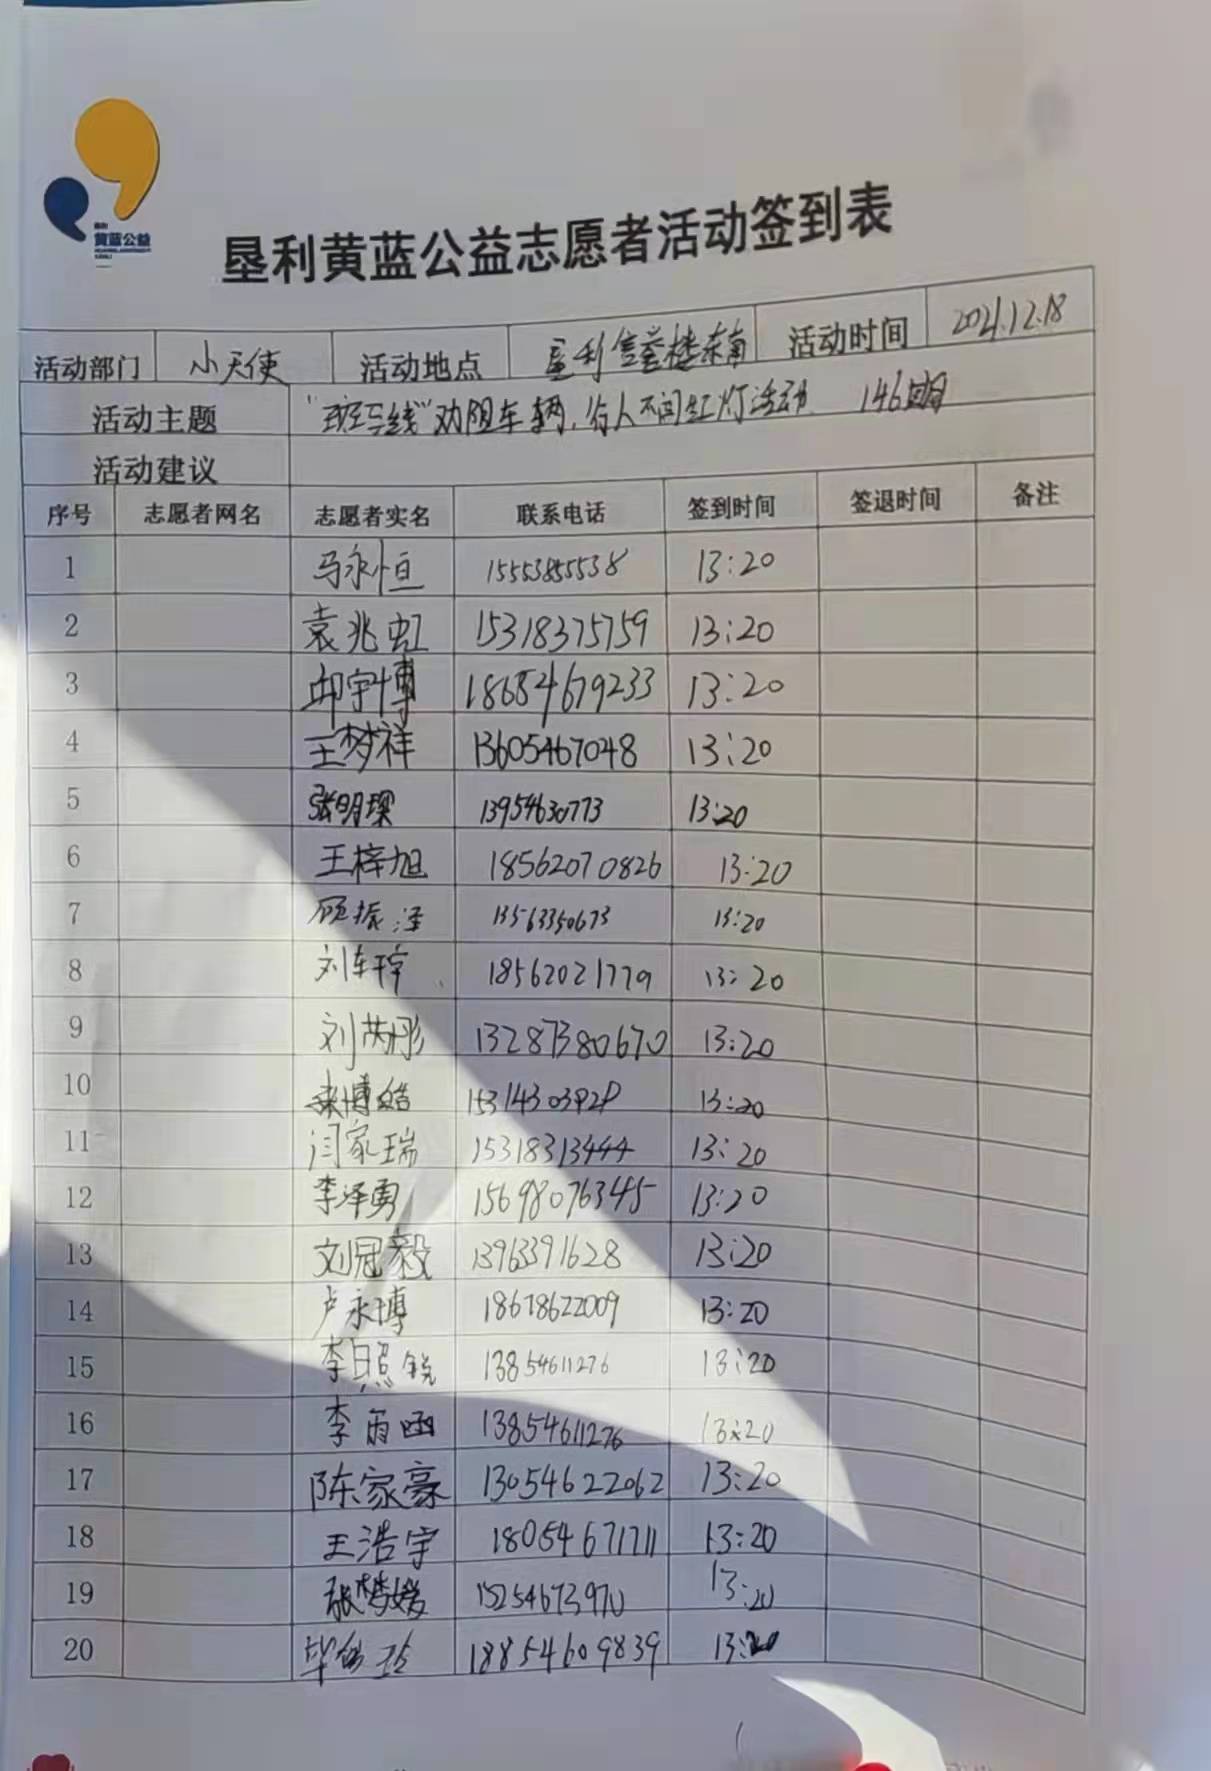 黄蓝公益
垦利黄蓝公益志愿者活动签到表
活动部门 小天使 活动地点 垦利信誉楼东南 活动时间 2021.12.18
活动主题 "斑马线"劝阻车辆,行人不闯红灯活动 146期
活动建议
序号 志愿者网名 志愿者实名 联系电话 签到时间 签退时间 备注
1 马永恒 15553855538 13:20
2 袁兆虹 15318375759 13:20
3 邱宇博 18654679233 13:20
4 王梦祥 13605467048 13:20
5 张明琛 13954630773 13:20
6 王梓旭 18562070826 13:20
7 顾振泽 13563350673 13:20
8 刘车玶 18562021779 13:20
9 刘芮彤 13287380670 13:20
10 13:20
11 闫家瑞 15318313444 13:20
12 李泽勇 15698076345 13:20
13 刘冠毅 1396391628 13:20
14 卢永博 18678622009 13:20
15 李照锐 13854611276 13:20
16 李雨函 13854611276 13:20
17 陈家豪 13054622062 13:20
18 王浩宇 18054671711 13:20
19 张梦媛 15254673970 13:20
20 18854609839 13:20